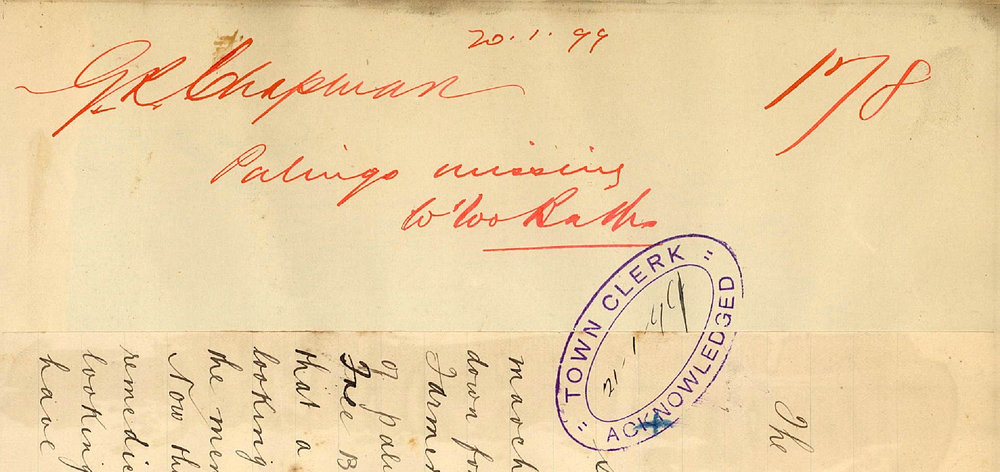 20.1.99
G. R. Chapman
178
Palings missing
W'loo Baths
TOWN CLERK
21-1-99
ACKNOWLEDGED
The
march
down fo
Farme
of pali
Free B
that a
looking
the men
Now th
remedie
looking
have